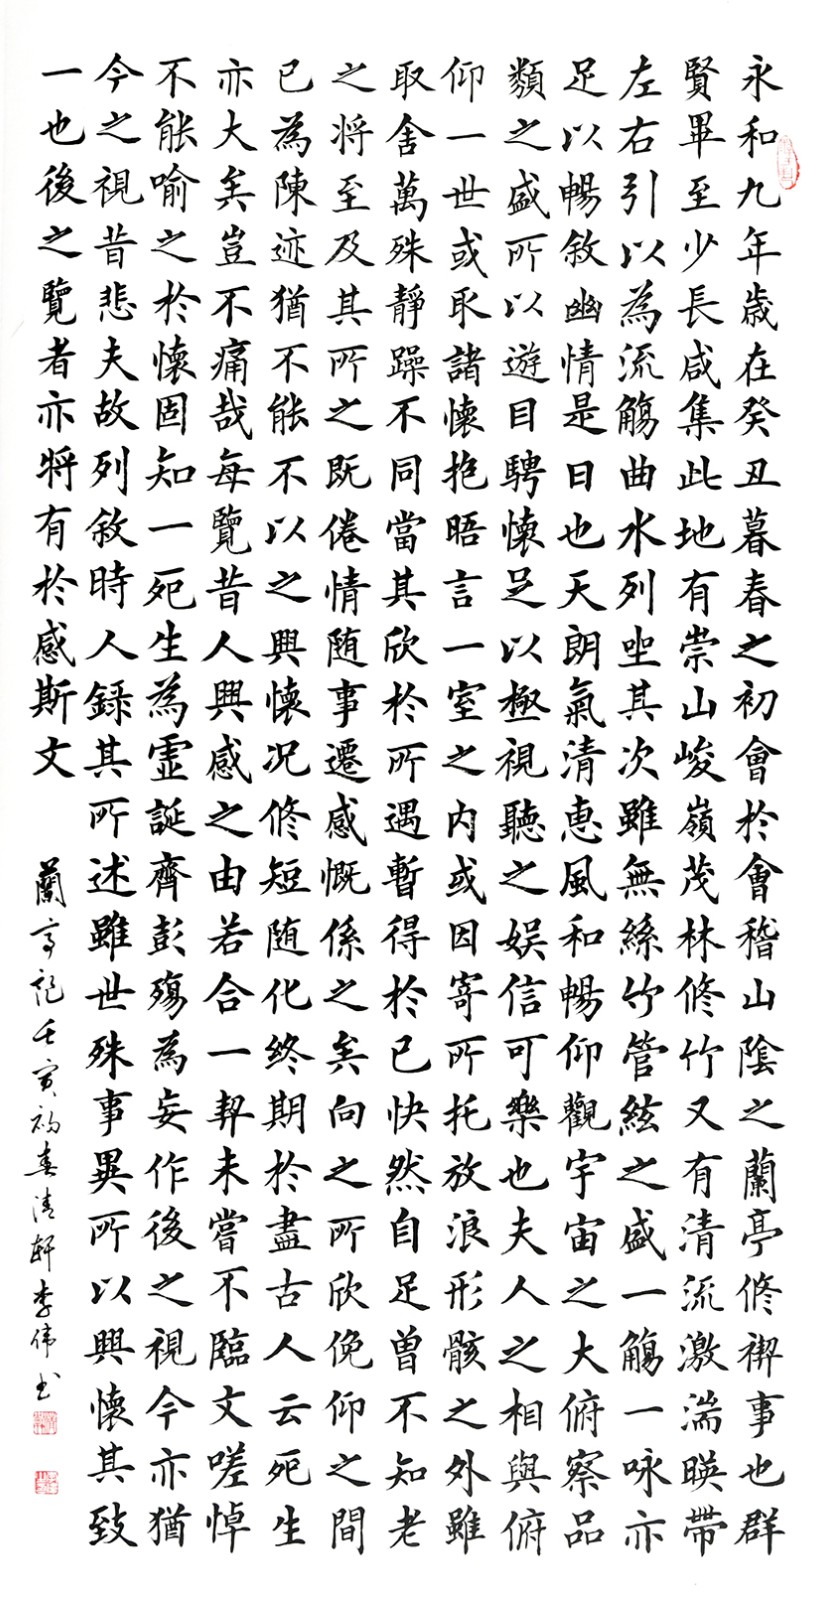 永和九年歲在癸丑暮春之初會於會稽山陰之蘭亭修禊事也群
賢畢至少長咸集此地有崇山峻嶺茂林修竹又有清流激湍暎帶
左右引以為流觴曲水列坐其次雖無絲竹管絃之盛一觴一咏亦
足以暢敘幽情是日也天朗氣清惠風和暢仰觀宇宙之大俯察品
類之盛所以遊目騁懷足以極視聽之娱信可樂也夫人之相與俯
仰一世或取諸懷抱晤言一室之内或因寄所托放浪形骸之外雖
取舍萬殊靜躁不同當其欣於所遇暫得於己快然自足曾不知老
之将至及其所之既倦情随事遷感慨係之矣向之所欣俛仰之間
已為陳迹猶不能不以之興懷况修短随化終期於盡古人云死生
亦大矣豈不痛哉每覽昔人興感之由若合一契未嘗不臨文嗟悼
不能喻之於懷固知一死生為虛誕齊彭殤為妄作後之視今亦猶
今之視昔悲夫故列敘時人錄其所述雖世殊事異所以興懷其致
一也後之覽者亦将有於感斯文
蘭亭記壬寅初春清軒李伟书